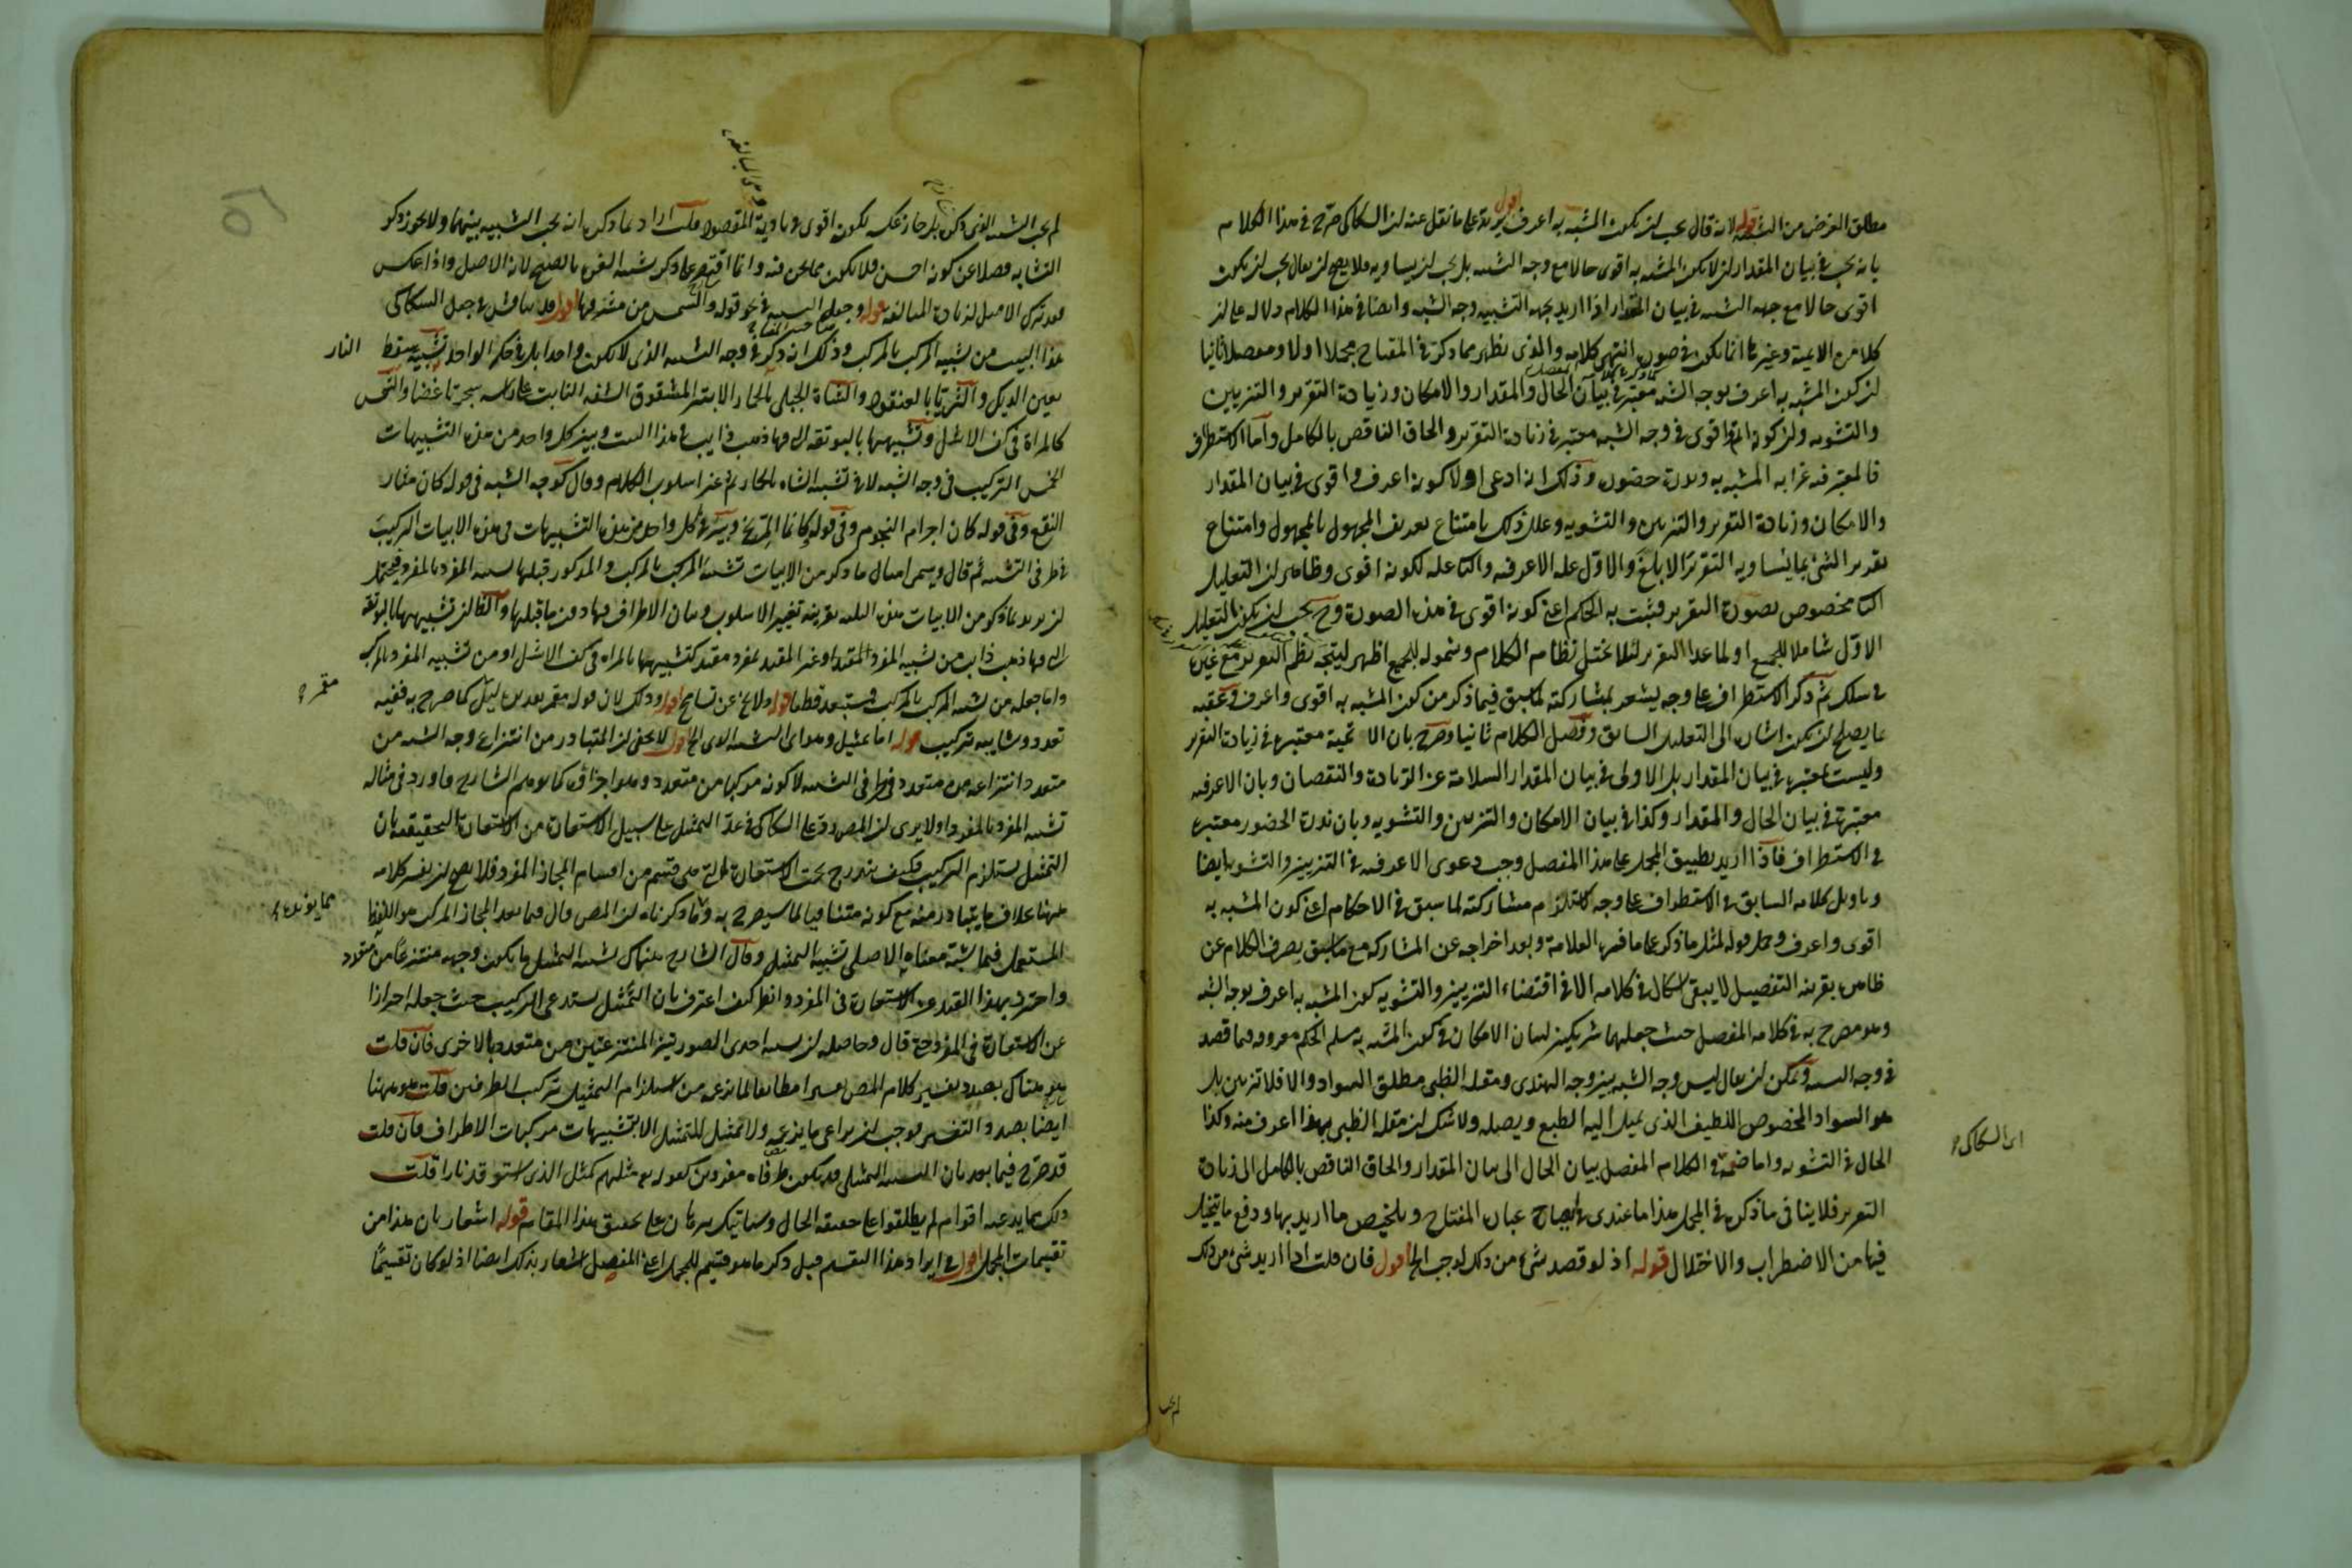 مطلق الغرض من التشبيه قوله لانه قال يجب ان يكون المشبه به اعرف اقول يرد على ما نقل عنه ان السكاكى صرح فى هذا الكلام
بانه يجب فى بيان المقدار ان لا يكون المشبه به اقوى حالا مع وجه التشبيه بل يجب ان يساويه فلا يصح ان يقال يجب ان يكون
اقوى حالا مع جهة التشبيه فى بيان المقدار اذا اريد بجهة التشبيه وجه الشبه وايضا فى هذا الكلام دلالة على ان
كلا من الاتمية وغيرها انما يكون فى صورة انتهى كلامه والذى يظهر مما ذكره فى المفتاح مجملا اولا ومفصلا ثانيا
ان كون المشبه به اعرف بوجه الشبه معتبر فى بيان الحال والمقدار والامكان وزيادة التقرير والتزيين
والتشويه وان كونه اقوى فى وجه الشبه معتبر فى زيادة التقرير والحاق الناقص بالكامل واما الاستطراف
فالمعتبر فيه غرابة المشبه به وندرة حضوره وذلك انه ادعى اولا كونه اعرف واقوى فى بيان المقدار
والامكان وزيادة التقرير والتزيين والتشويه وعلل ذلك بامتناع تعريف المجهول بالمجهول وامتناع
تقرير الشئ بما يساويه التقرير الابلغ والاول علة الاعرفية والثانى علة لكونه اقوى وظاهر ان التعليل
الثانى مخصوص بصورة التقرير فيثبت به الحكم اعنى كونه اقوى فى هذه الصورة وح يجب ان يكون التعليل
الاول شاملا للجميع او لما عدا التقرير لئلا يختل نظام الكلام وشموله للجميع اظهر ليتجه نظم التقرير مع غيره
فى سلك ثم ذكر الاستطراف على وجه يشعر بمشاركته لما سبق فيما ذكر من كون المشبه به اقوى واعرف وعقبه
بما يصلح ان يكون اشارة الى التعليل السابق وفصل الكلام ثانيا وصرح بان الاتمية معتبرة فى زيادة التقرير
وليست معتبرة فى بيان المقدار بل الاولى فى بيان المقدار السلامة عن الزيادة والنقصان وبان الاعرفية
معتبرة فى بيان الحال والمقدار وكذا فى بيان الامكان والتزيين والتشويه وبان ندرة الحضور معتبرة
فى الاستطراف فاذا اريد تطبيق المجمل على هذا المفصل وجب دعوى الاعرفية فى التزيين والتشويه ايضا
وتاويل كلامه السابق فى الاستطراف على وجه مشاركته لما سبق فى الاحكام اعنى كون المشبه به
اقوى واعرف وحمل قوله لمثل ما ذكر على ما فسره العلامة وبعد اخراجه عن المشاركة مع ما سبق بصرف الكلام عن
ظاهره بقرينة التفصيل لا يبقى اشكال فى كلامه الا فى اقتضاء التزيين والتشويه كون المشبه به اعرف بوجه الشبه
وهو مصرح به فى كلامه المفصل حيث جعلهما شريكين لبيان الامكان فى كون المشبه به مسلم الحكم معروفه فيما قصد
فى وجه الشبه ويمكن ان يقال ليس وجه الشبه بين وجه الهندى ومقلة الظبى مطلق السواد والا فلا تزيين بل
هو السواد المخصوص اللطيف الذى يميل اليه الطبع ويصله ولا شك ان مقلة الظبى بهذا اعرف منه وكذا
الحال فى التشويه واما ضمه فى الكلام المفصل بيان الحال الى بيان المقدار والحاق الناقص بالكامل الى زيادة
التقرير فلا ينافى ما ذكره فى المجمل هذا ما عندى فى ايضاح عبارة المفتاح وتلخيص ما اريد بها ودفع ما يتخيل
فيها من الاضطراب والاختلال قوله اذ لو قصد شئ من ذلك لوجب الخ اقول فان قلت اذا اريد شئ من ذلك
اى السكاكى
لم يجب
لم يجب التشبيه الذى ذكره بل جاز عكسه لكونه اقوى فى تادية المقصود قلت اراد بما ذكره انه يجب التشبيه بينهما ولا يجوز ذكر
التشابه فضلا عن كونه احسن فلا يكون مما نحن فيه وانما اقتصر على ذكر تشبيه الغرة بالصبح لانه الاصل واذا عكس
فقد ترك الاصل لزيادة المبالغة قوله وجعله التشبيه فى نحو قوله والشمس من مشرقها اقول قد يناقش فى جعل السكاكى
هذا البيت من تشبيه المركب بالمركب وذلك انه ذكر فى وجه التشبيه الذى لا يكون واحدا بل فى حكم الواحد تشبيه سقط النار
بعين الديك والثريا بالعنقود والشاة الجبلى بالحمار الابتر المشقوق الشفة النابت على راسه شجرتا غضا والشمس
كالمرآة فى كف الاشل وتشبيهها بالبوتقة التى فيها ذهب ذائب فى هذا البيت وبين كل واحد من هذه التشبيهات
الخمس التركيب فى وجه الشبه لا فى تشبيه الشاة بالحمار ثم غير اسلوب الكلام وقال كوجه الشبه فى قوله كان مثار
النقع وفى قوله كان اجرام النجوم وفى قوله كانما المريخ وبين فى كل واحد من هذه التشبيهات فى هذه الابيات التركيب
فى طرفى التشبيه ثم قال ويسمى امثال ما ذكر من الابيات تشبيه المركب بالمركب والمذكور قبلها تشبيه المفرد بالمفرد فيحتمل
ان يريد بما ذكر من الابيات هذه الثلثة بقرينة تغيير الاسلوب وبيان الاطراف فيها دون ما قبلها والظ ان تشبيهها بالبوتقة
التى فيها ذهب ذائب من تشبيه المفرد المقيد او غير المقيد بمفرد مقيد كتشبيهها بالمرآة فى كف الاشل او من تشبيه المفرد بالمركب
واما جعله من تشبيه المركب بالمركب فمستبعد قطعا قوله ولا يخ عن تسامح اقول وذلك لان قوله مقمر تقديره ليل كما صرح به ففيه
تعدد وشايبة تركيب قوله اما تمثيل وهو اى التشبيه الذى الخ اقول لا يخفى ان المتبادر من انتزاع وجه الشبه من
متعدد انتزاعه من متعدد فى طرفى التشبيه لا كونه مركبا من متعدد هو اجزاؤه كما توهم الشارح فاورد فى مثاله
تشبيه المفرد بالمفرد اولا يرى ان المص رد على السكاكى فى عده التمثيل على سبيل الاستعارة من الاستعارة التحقيقية بان
التمثيل يستلزم التركيب فكيف يندرج تحت الاستعارة التى هى قسم من اقسام المجاز المفرد فلا يصح ان يفسر كلامه
ههنا بخلاف ما يتبادر منه مع كونه منافيا لما سيصرح به ومما يؤيد ما ذكرناه ان المص قال فيما بعد المجاز المركب هو اللفظ
المستعمل فيما شبه بمعناه الاصلى تشبيه التمثيل وقال الشارح هناك تشبيه التمثيل ما يكون وجهه منتزعا من متعدد
واحترز بهذا القيد عن الاستعارة فى المفرد وانظر كيف اعترف بان التمثيل يستدعى التركيب حيث جعله احترازا
عن الاستعارة فى المفرد حتى قال وحاصله ان تشبه احدى الصورتين المنتزعتين من متعدد بالاخرى فان قلت
هو هناك بصدد تفسير كلام المص تفسيرا مطابقا لما يزعمه من استلزام التمثيل تركيب الطرفين قلت هو ههنا
ايضا بصدد التفسير فوجب ان يراعى ما يزعمه ولا تمثيل للتمثيل الا بتشبيهات مركبات الاطراف فان قلت
قد صرح فيما بعد بان التشبيه التمثيلى قد يكون طرفاه مفردين كقوله تعالى مثلهم كمثل الذى استوقد نارا قلت
ذلك مما يدعيه اقوام لم يطلعوا على حقيقة الحال وسياتيك برهان على تحقيق هذا المقام قوله اشعار بان هذا من
تقسيمات المجمل اقول فى ايراد هذا التقسيم قبل ذكر ما هو قسيم للمجمل اعنى المفصل اشعار بذلك ايضا اذ لو كان تقسيما